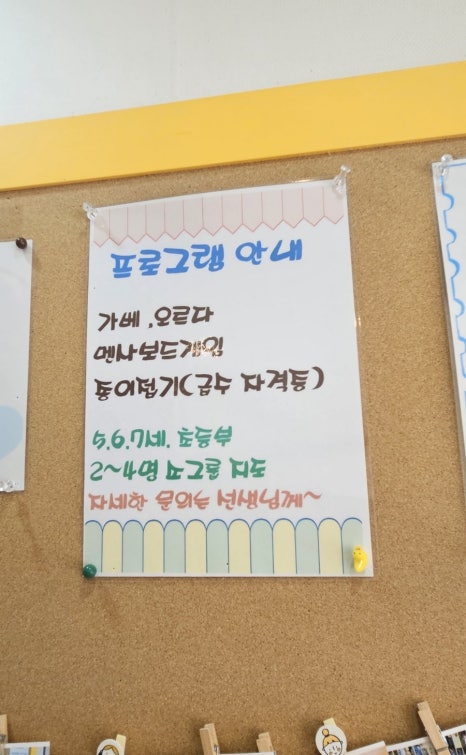 프로그램 안내
가베, 오르다
멘사보드게임
종이접기(급수 자격증)
5.6.7세, 초등부
2~4명 소그룹 지도
자세한 문의는 선생님께~